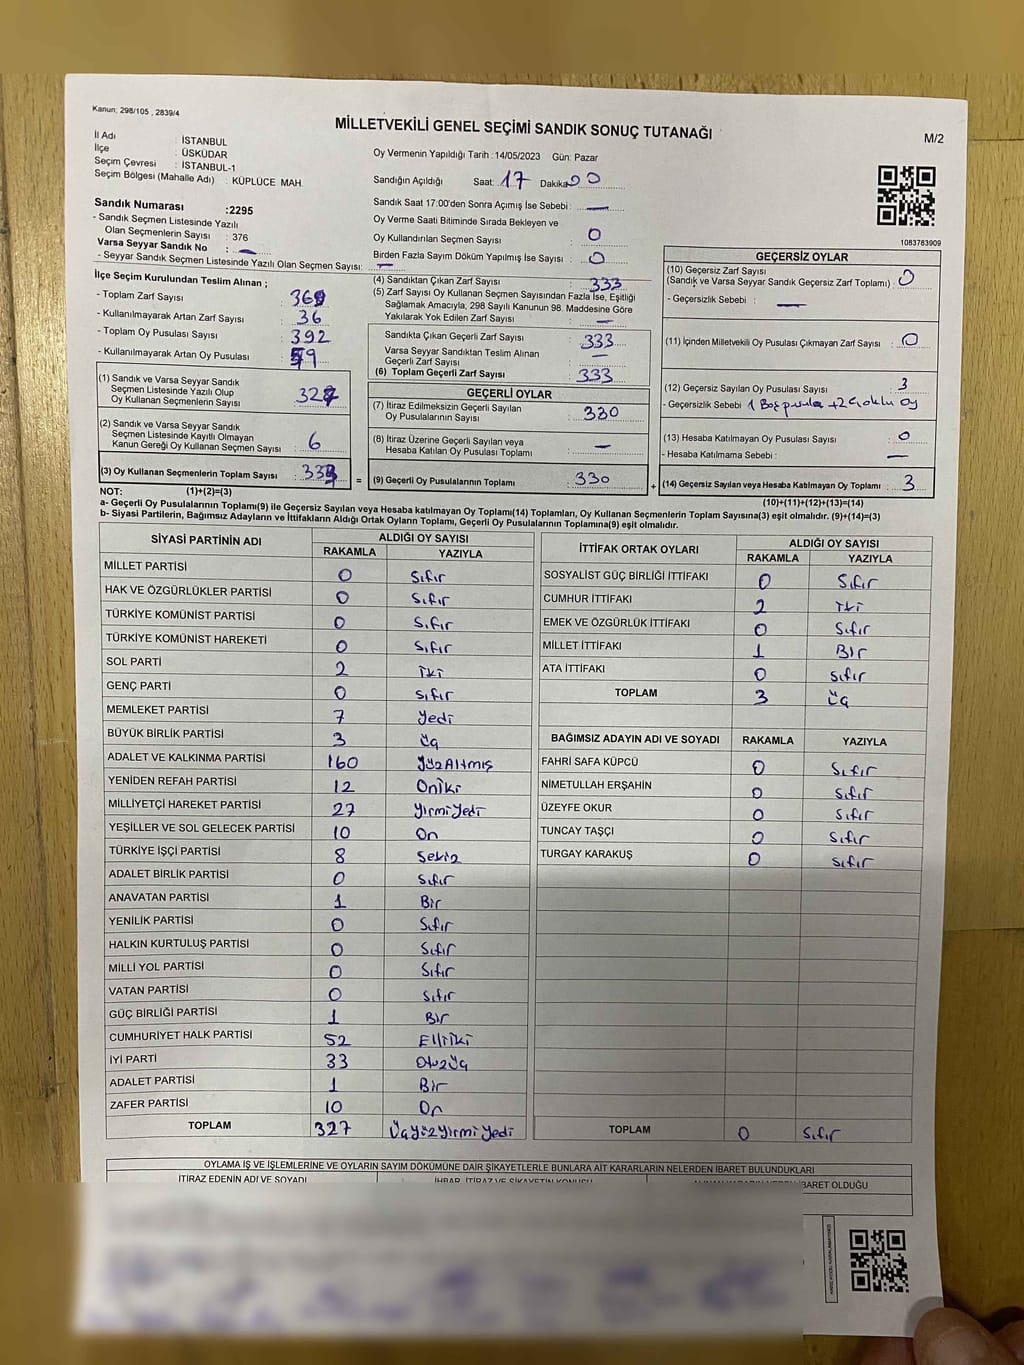 Kanun: 298/105 , 2839/4
MİLLETVEKİLİ GENEL SEÇİMİ SANDIK SONUÇ TUTANAĞI
M/2
İl Adı : İSTANBUL
İlçe : ÜSKÜDAR
Seçim Çevresi : İSTANBUL-1
Seçim Bölgesi (Mahalle Adı) : KÜPLÜCE MAH.
Oy Vermenin Yapıldığı Tarih : 14/05/2023 Gün: Pazar
Sandığın Açıldığı Saat: 17 Dakika 00
Sandık Saat 17:00'den Sonra Açımış İse Sebebi : —
Oy Verme Saati Bitiminde Sırada Bekleyen ve
Oy Kullandırılan Seçmen Sayısı : 0
Birden Fazla Sayım Döküm Yapılmış İse Sayısı : 0
Sandık Numarası :2295
- Sandık Seçmen Listesinde Yazılı
Olan Seçmenlerin Sayısı : 376
Varsa Seyyar Sandık No : —
- Seyyar Sandık Seçmen Listesinde Yazılı Olan Seçmen Sayısı: —
1083783909
İlçe Seçim Kurulundan Teslim Alınan ;
- Toplam Zarf Sayısı : 369
- Kullanılmayarak Artan Zarf Sayısı : 36
- Toplam Oy Pusulası Sayısı : 392
- Kullanılmayarak Artan Oy Pusulası : 59
(1) Sandık ve Varsa Seyyar Sandık
Seçmen Listesinde Yazılı Olup
Oy Kullanan Seçmenlerin Sayısı : 327
(2) Sandık ve Varsa Seyyar Sandık
Seçmen Listesinde Kayıtlı Olmayan
Kanun Gereği Oy Kullanan Seçmen Sayısı : 6
(3) Oy Kullanan Seçmenlerin Toplam Sayısı : 333 =
(4) Sandıktan Çıkan Zarf Sayısı : 333
(5) Zarf Sayısı Oy Kullanan Seçmen Sayısından Fazla İse, Eşitliği
Sağlamak Amacıyla, 298 Sayılı Kanunun 98. Maddesine Göre
Yakılarak Yok Edilen Zarf Sayısı : —
Sandıkta Çıkan Geçerli Zarf Sayısı : 333
Varsa Seyyar Sandıktan Teslim Alınan
Geçerli Zarf Sayısı : —
(6) Toplam Geçerli Zarf Sayısı : 333
GEÇERLİ OYLAR
(7) İtiraz Edilmeksizin Geçerli Sayılan
Oy Pusulalarının Sayısı : 330
(8) İtiraz Üzerine Geçerli Sayılan veya
Hesaba Katılan Oy Pusulası Toplamı : —
(9) Geçerli Oy Pusulalarının Toplamı : 330 +
GEÇERSİZ OYLAR
(10) Geçersiz Zarf Sayısı
(Sandık ve Varsa Seyyar Sandık Geçersiz Zarf Toplamı) : 0
- Geçersizlik Sebebi : —
(11) İçinden Milletvekili Oy Pusulası Çıkmayan Zarf Sayısı : 0
(12) Geçersiz Sayılan Oy Pusulası Sayısı : 3
- Geçersizlik Sebebi : 1 Boş pusula +2 Çoklu oy
(13) Hesaba Katılmayan Oy Pusulası Sayısı : 0
- Hesaba Katılmama Sebebi : —
(14) Geçersiz Sayılan veya Hesaba Katılmayan Oy Toplamı : 3
NOT: (1)+(2)=(3)
(10)+(11)+(12)+(13)=(14)
a- Geçerli Oy Pusulalarının Toplamı(9) ile Geçersiz Sayılan veya Hesaba katılmayan Oy Toplamı(14) Toplamları, Oy Kullanan Seçmenlerin Toplam Sayısına(3) eşit olmalıdır. (9)+(14)=(3)
b- Siyasi Partilerin, Bağımsız Adayların ve İttifakların Aldığı Ortak Oyların Toplamı, Geçerli Oy Pusulalarının Toplamına(9) eşit olmalıdır.
SİYASİ PARTİNİN ADI ALDIĞI OY SAYISI
RAKAMLA YAZIYLA
MİLLET PARTİSİ 0 Sıfır
HAK VE ÖZGÜRLÜKLER PARTİSİ 0 Sıfır
TÜRKİYE KOMÜNİST PARTİSİ 0 Sıfır
TÜRKİYE KOMÜNİST HAREKETİ 0 Sıfır
SOL PARTİ 2 İki
GENÇ PARTİ 0 Sıfır
MEMLEKET PARTİSİ 7 Yedi
BÜYÜK BİRLİK PARTİSİ 3 Üç
ADALET VE KALKINMA PARTİSİ 160 YüzAltmış
YENİDEN REFAH PARTİSİ 12 Oniki
MİLLİYETÇİ HAREKET PARTİSİ 27 YirmiYedi
YEŞİLLER VE SOL GELECEK PARTİSİ 10 On
TÜRKİYE İŞÇİ PARTİSİ 8 Sekiz
ADALET BİRLİK PARTİSİ 0 Sıfır
ANAVATAN PARTİSİ 1 Bir
YENİLİK PARTİSİ 0 Sıfır
HALKIN KURTULUŞ PARTİSİ 0 Sıfır
MİLLİ YOL PARTİSİ 0 Sıfır
VATAN PARTİSİ 0 Sıfır
GÜÇ BİRLİĞİ PARTİSİ 1 Bir
CUMHURİYET HALK PARTİSİ 52 Elliiki
İYİ PARTİ 33 OtuzÜç
ADALET PARTİSİ 1 Bir
ZAFER PARTİSİ 10 On
TOPLAM 327 ÜçYüzYirmiYedi
İTTİFAK ORTAK OYLARI ALDIĞI OY SAYISI
RAKAMLA YAZIYLA
SOSYALİST GÜÇ BİRLİĞİ İTTİFAKI 0 Sıfır
CUMHUR İTTİFAKI 2 İki
EMEK VE ÖZGÜRLÜK İTTİFAKI 0 Sıfır
MİLLET İTTİFAKI 1 Bir
ATA İTTİFAKI 0 Sıfır
TOPLAM 3 Üç
BAĞIMSIZ ADAYIN ADI VE SOYADI RAKAMLA YAZIYLA
FAHRİ SAFA KÜPCÜ 0 Sıfır
NİMETULLAH ERŞAHİN 0 Sıfır
ÜZEYFE OKUR 0 Sıfır
TUNCAY TAŞÇI 0 Sıfır
TURGAY KARAKUŞ 0 Sıfır
TOPLAM 0 Sıfır
OYLAMA İŞ VE İŞLEMLERİNE VE OYLARIN SAYIM DÖKÜMÜNE DAİR ŞİKAYETLERLE BUNLARA AİT KARARLARIN NELERDEN İBARET BULUNDUKLARI
İTİRAZ EDENİN ADI VE SOYADI İHBAR, İTİRAZ VE ŞİKAYETİN KONUSU İBARET OLDUĞU